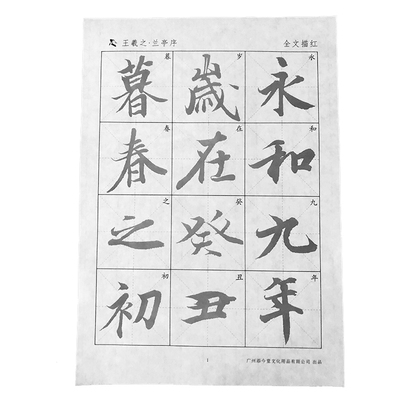 王羲之·兰亭序
全文描红
永和九年
永和九年
歲在癸丑
岁在癸丑
暮春之初
暮春之初
1
文化用品有限公司 出品